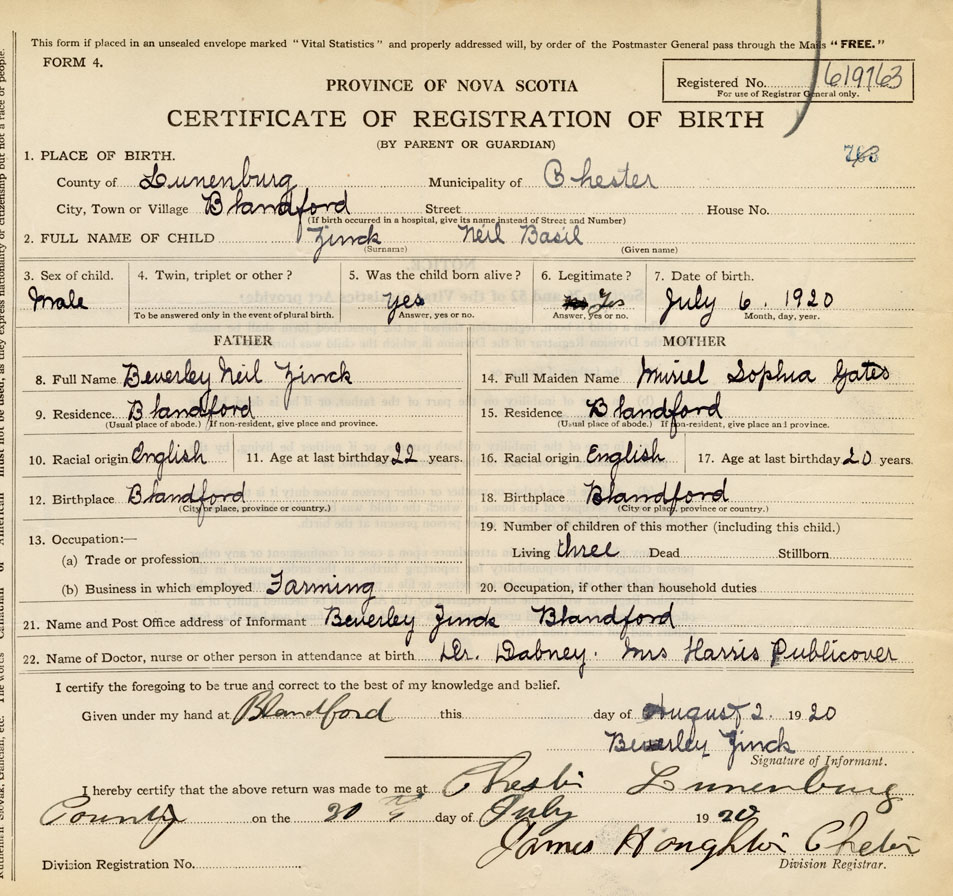 This form if placed in an unsealed envelope marked "Vital Statistics" and properly addressed will, by order of the Postmaster General pass through the Mails "FREE."
FORM 4.
PROVINCE OF NOVA SCOTIA
Registered No. 619763
For use of Registrar General only.
CERTIFICATE OF REGISTRATION OF BIRTH
(BY PARENT OR GUARDIAN)
763
1. PLACE OF BIRTH.
County of Lunenburg Municipality of Chester
City, Town or Village Blandford Street House No.
(If birth occurred in a hospital, give its name instead of Street and Number)
2. FULL NAME OF CHILD Zinck Neil Basil
(Surname) (Given name)
3. Sex of child. 4. Twin, triplet or other? 5. Was the child born alive? 6. Legitimate? 7. Date of birth.
Male yes Yes July 6. 1920
To be answered only in the event of plural birth. Answer, yes or no. Answer, yes or no. Month, day, year.
FATHER MOTHER
8. Full Name Beverley Neil Zinck 14. Full Maiden Name Muriel Sophia Gates
9. Residence. Blandford 15. Residence Blandford
(Usual place of abode.) If non-resident, give place and province. (Usual place of abode.) If non-resident, give place and province.
10. Racial origin English 11. Age at last birthday 22 years. 16. Racial origin English 17. Age at last birthday 20 years.
12. Birthplace Blandford 18. Birthplace Blandford
(City or place, province or country.) (City or place, province or country.)
13. Occupation:— 19. Number of children of this mother (including this child.)
(a) Trade or profession Living three Dead Stillborn
(b) Business in which employed Farming 20. Occupation, if other than household duties
21. Name and Post Office address of Informant Beverley Zinck Blandford
22. Name of Doctor, nurse or other person in attendance at birth Dr. Dabney. Mrs Harris Publicover
I certify the foregoing to be true and correct to the best of my knowledge and belief.
Given under my hand at Blandford this day of August 2. 1920
Beverley Zinck
Signature of Informant.
I hereby certify that the above return was made to me at Chester Lunenburg
County on the 20 day of July 1920
James Houghton Chester
Division Registration No. Division Registrar.